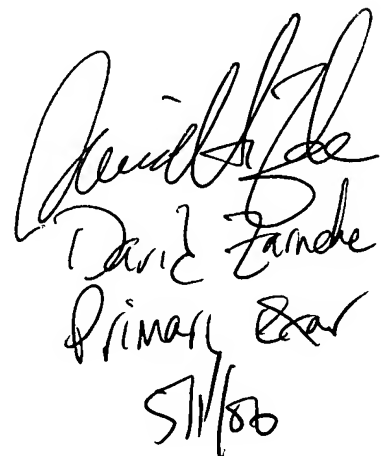 David Zarneke
Primary Exar
5/1/06